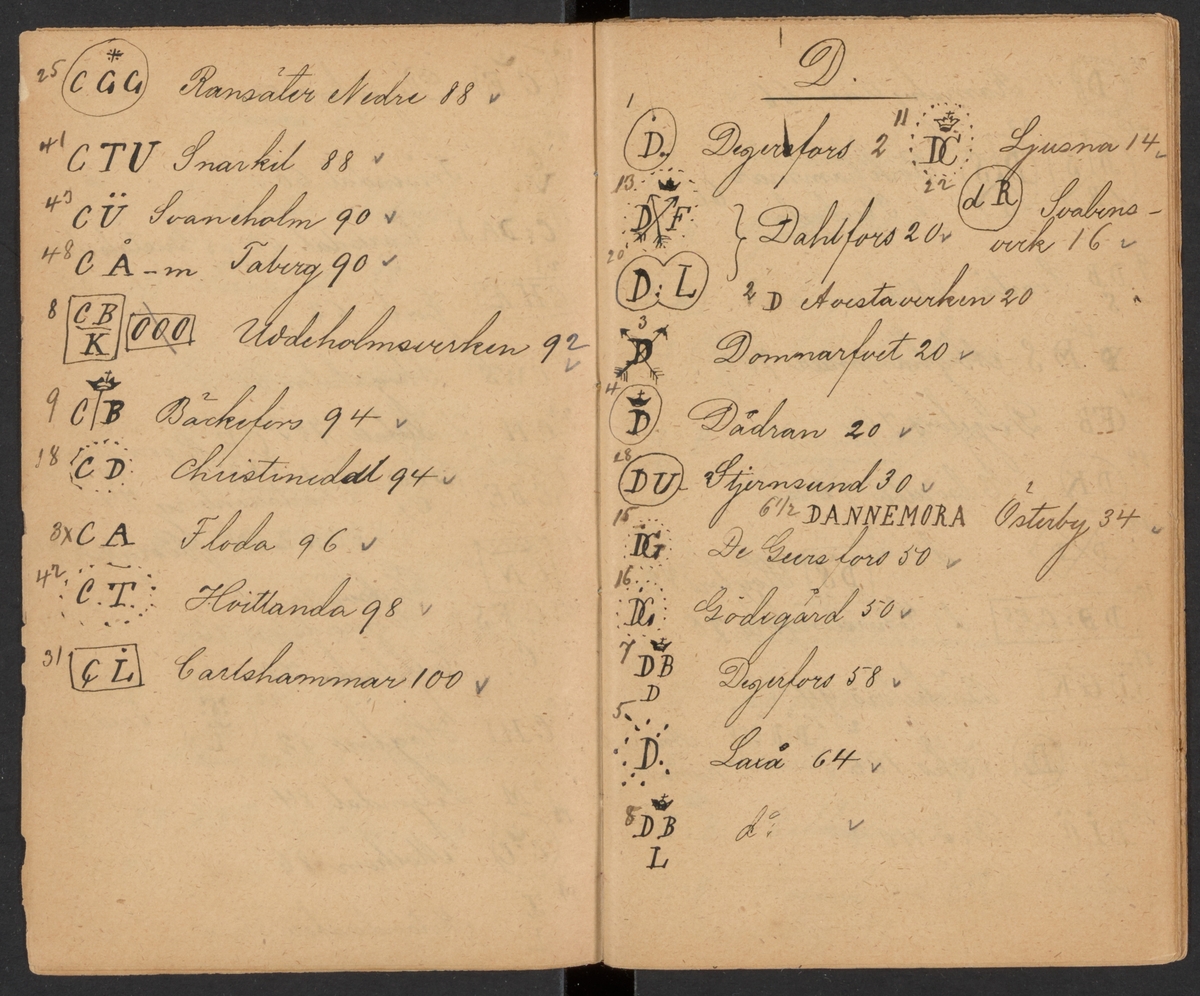 25 C G G Ransäter Nedre 88 ✓
41 C T U Snarkil 88 ✓
43 C Ü Svaneholm 90 ✓
48 C Å - m Taberg 90 ✓
8 C B K OOO Uddeholmsverken 92 ✓
9 C B Bäckefors 94 ✓
18 C D Christinedal 94 ✓
3x C A Floda 96 ✓
42 C. T. Hvittlanda 98 ✓
31 C L Carlshammar 100 ✓
D.
1 D. Degerfors 2
11 DC Ljusna 14 ✓
22 d R Svabens-
verk 16 ✓
13 D F
Dahlfors 20 ✓
20 D: L
2 D Avestaverken 20
3 D Domnarfvet 20 ✓
4 D Dådran 20 ✓
28 D U Stjernsund 30 ✓
6 1/2 DANNEMORA Österby 34 ✓
15 DG De Geersfors 50 ✓
16 DG Godegård 50 ✓
7 D B D Degerfors 58 ✓
5 D. Laxå 64 ✓
8 D B L do: ✓